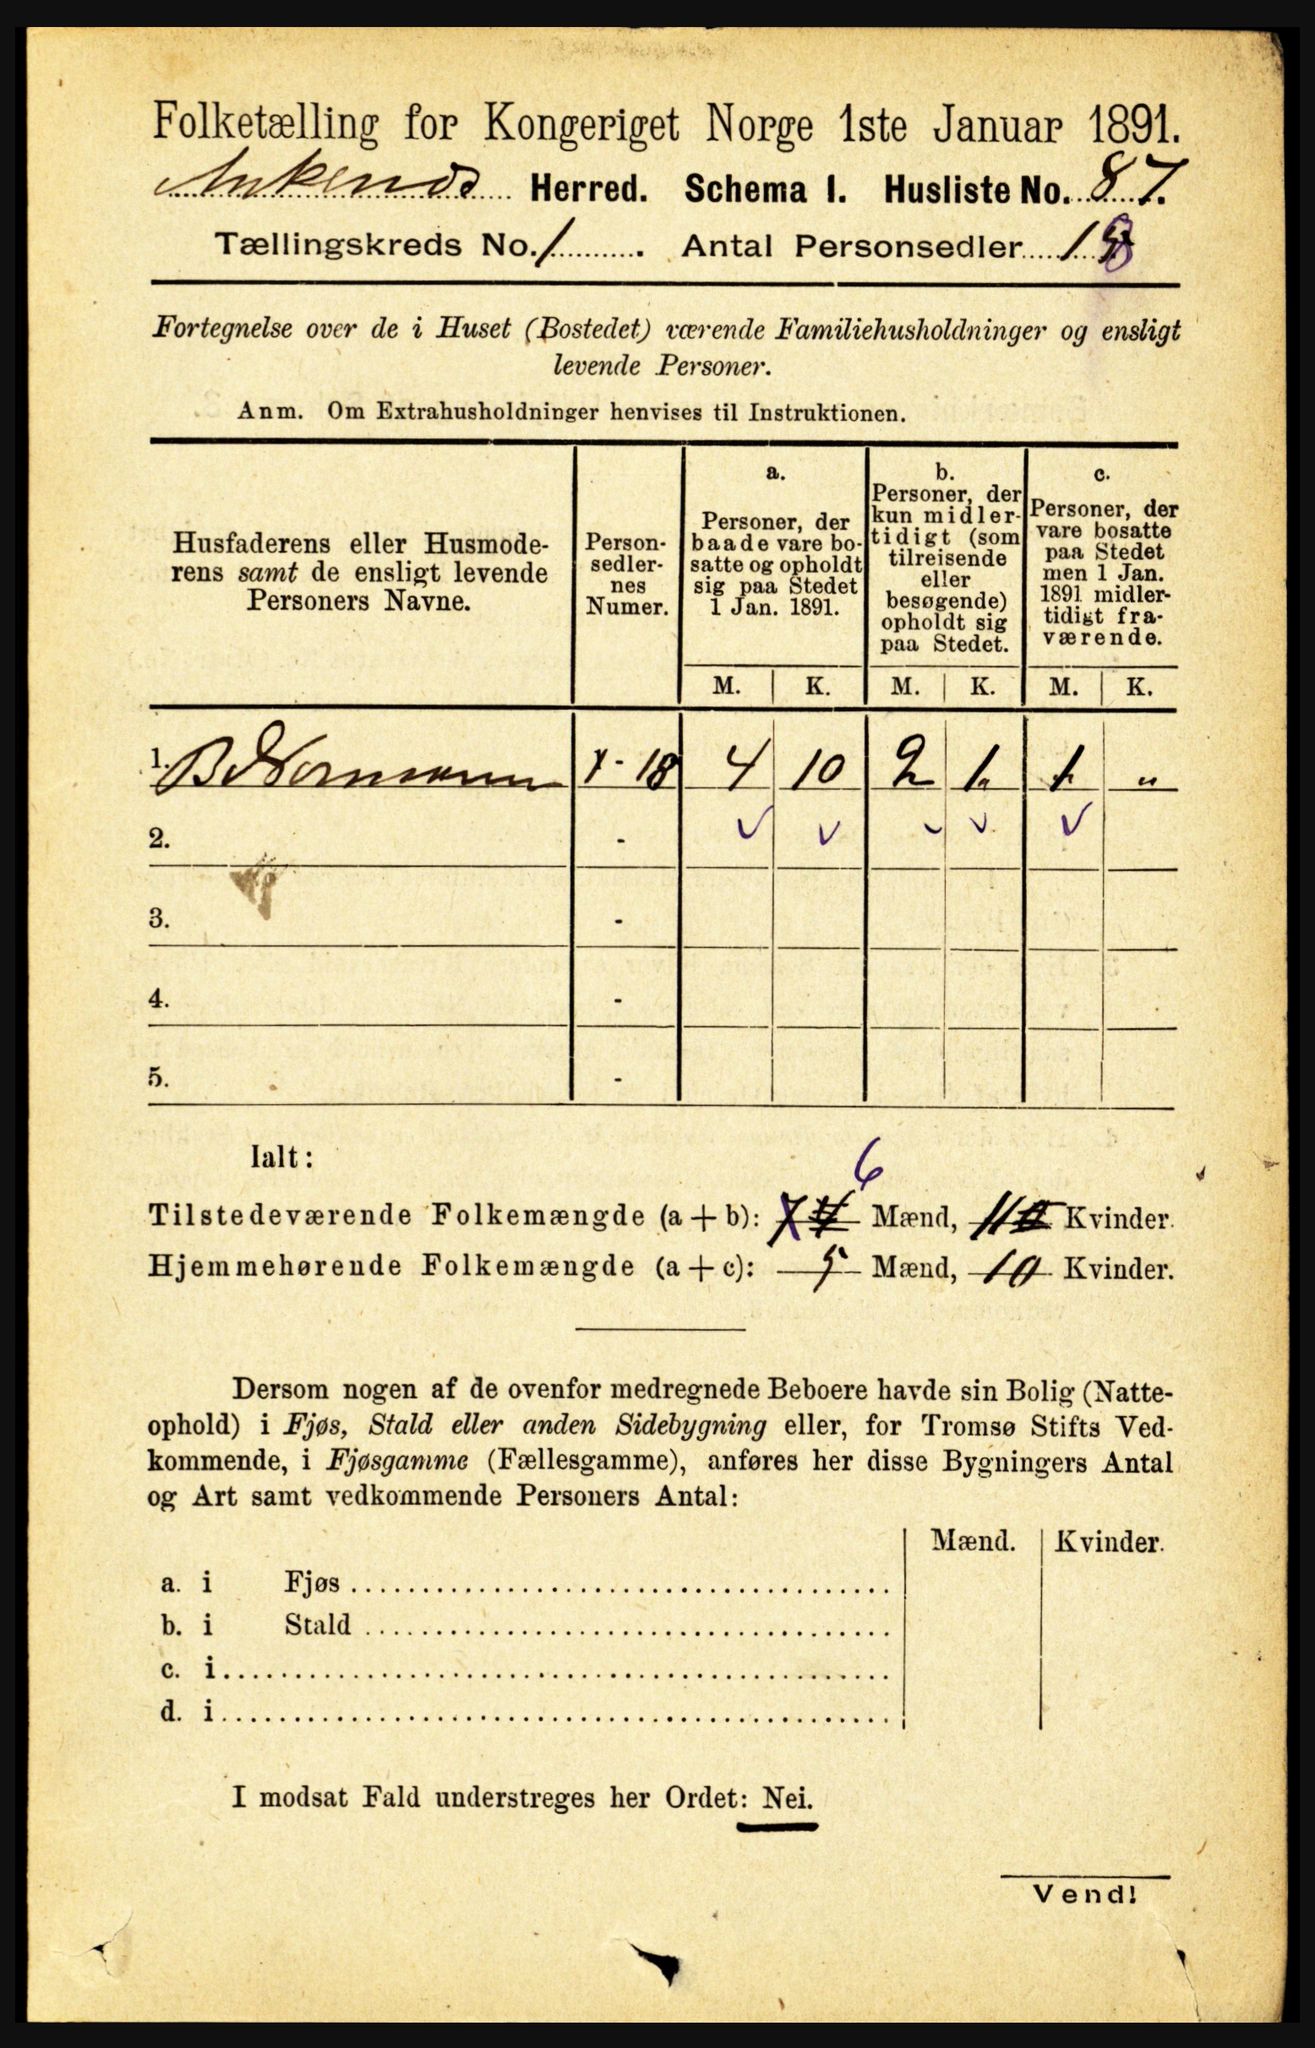 Folketælling for Kongeriget Norge 1ste Januar 1891.
Ankenes Herred. Schema 1. Husliste No. 87.
Tællingskreds No. 1. Antal Personsedler 18
Fortegnelse over de i Huset (Bostedet) værende Familiehusholdninger og ensligt
levende Personer.
Anm. Om Extrahusholdninger henvises til Instruktionen.
Husfaderens eller Husmode-
rens samt de ensligt levende
Personers Navne.
Person-
sedler-
nes
Numer.
a.
Personer, der
baade vare bo-
satte og opholdt
sig paa Stedet
1 Jan. 1891.
b.
Personer, der
kun midler-
tidigt (som
tilreisende
eller
besøgende)
opholdt sig
paa Stedet.
c.
Personer, der
vare bosatte
paa Stedet
men 1 Jan.
1891 midler-
tidigt fra-
værende.
M. K. M. K. M. K.
1. Normann 1-18 4 10 2 1 1 "
2. - ✓ ✓ ✓ ✓ ✓
3. -
4. -
5. -
Ialt:
6
Tilstedeværende Folkemængde (a + b): Mænd, 11 Kvinder.
Hjemmehørende Folkemængde (a + c): 5 Mænd, 10 Kvinder.
Dersom nogen af de ovenfor medregnede Beboere havde sin Bolig (Natte-
ophold) i Fjøs, Stald eller anden Sidebygning eller, for Tromsø Stifts Ved-
kommende, i Fjøsgamme (Fællesgamme), anføres her disse Bygningers Antal
og Art samt vedkommende Personers Antal:
Mænd. Kvinder.
a. i Fjøs
b. i Stald
c. i
d. i
I modsat Fald understreges her Ordet: Nei.
Vend!